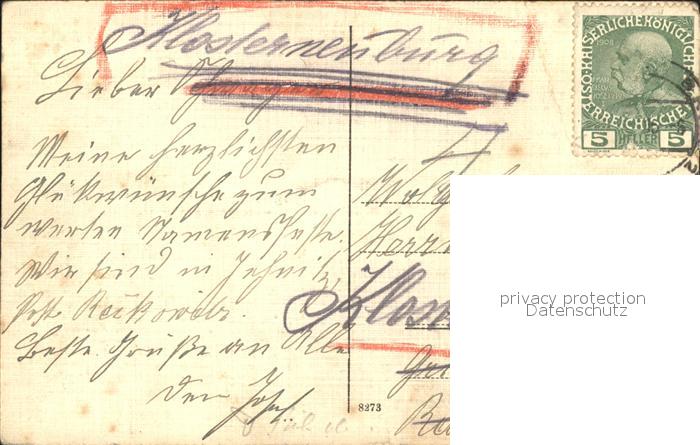 Klosterneuburg
Lieber Schwager
Meine herzlichsten
Glükwünsche zum
werten Namensfeste.
Wir sind in Jehnitz,
Post Reckowitz.
Beste Grüße an Alle
Dein Josef
Wohlg
Herrn
Klos
8273
KAISERLICHE KÖNIGLICHE
ÖSTERREICHISCHE POST
1908
5 HELLER 5
privacy protection
Datenschutz